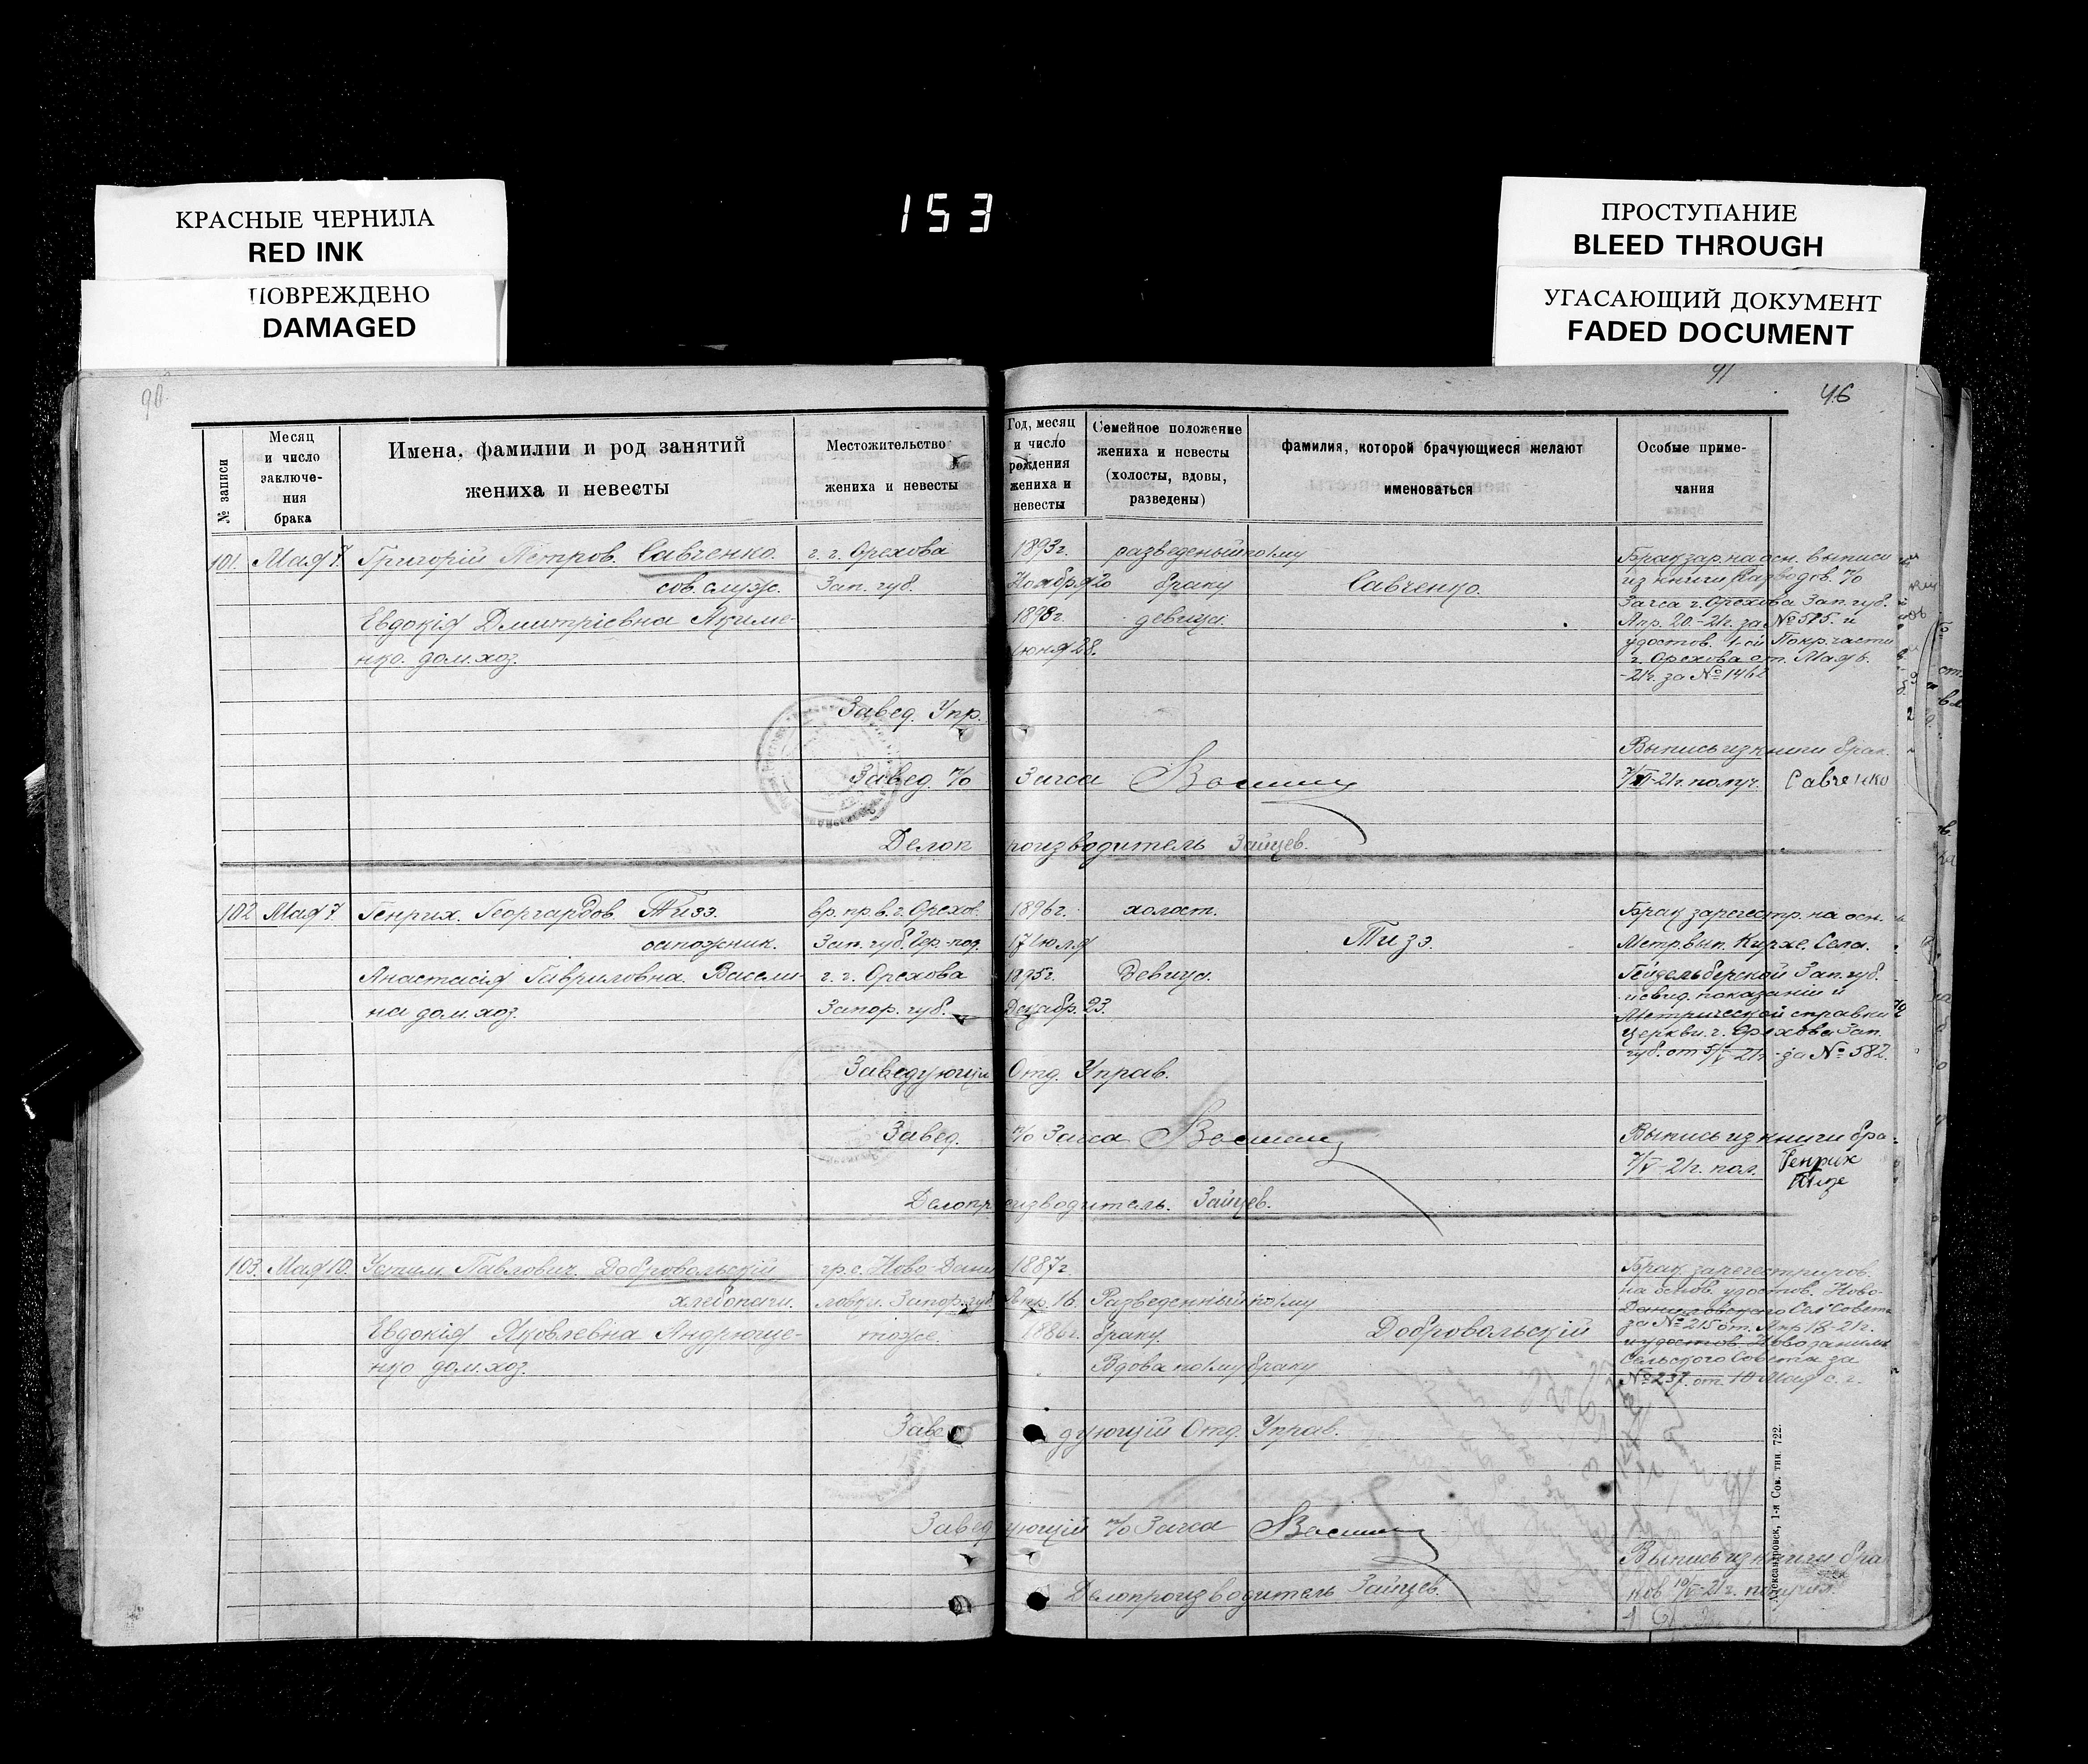 КРАСНЫЕ ЧЕРНИЛА
RED INK
ПОВРЕЖДЕНО
DAMAGED
153
ПРОСТУПАНИЕ
BLEED THROUGH
УГАСАЮЩИЙ ДОКУМЕНТ
FADED DOCUMENT
90
91
46
№ записи
Месяц и число заключения брака
Имена, фамилии и род занятий жениха и невесты
Местожительство жениха и невесты
Год, месяц и число рождения жениха и невесты
Семейное положение жениха и невесты (холосты, вдовы, разведены)
фамилия, которой брачующиеся желают именоваться
Особые примечания
101. Мая 7. Григорій Петров. Савченко г. г. Орехова 1893г. разведеный по 1му
сов. служ. Зап. губ. Ноября 20 браку Савченко.
Евдокія Дмитріевна Акиме- 1898г. девица.
нко. дом. хоз. Іюня 28.
Брак зар. на осн. выписи
из книги Разводов. п/о
Загса г. Орехова Зап. губ.
Апр. 20.-21г. за №585. и
удостов. 1-ой Покр. части
г. Орехова от Мая 6.
-21г. за №1462
Завед. Упр.
Выпись из книги брак.
Завед. п/о Загса
7/V-21г. получ. Савченко
Делопроизводитель Зайцев.
102 Мая 7. Генрих. Георгардов. Тизэ. вр. пр. в. г. Орехов. 1896г. холост.
сапожник. Зап. губ. Гер-под. 17 Іюля Тизэ.
Анастасія Гавриловна. Васели- г. г. Орехова 1895г. Девица.
на дом. хоз. Запор. губ. Декабр. 23.
Брак зарегестр. на осн.
Метр. вып. Кирхе. Села.
Гейдельберской Зап. губ.
и свид. показаніи и
Метрической справки
Церкви г. Орехова Зап.
губ. от 5/V-21г. за №582.
Заведующій Отд. Управ.
Завед. п/о Загса
Выпись из книги бра-
7/V-21г. пол. Генрих
Тизе
Делопроизводитель. Зайцев.
103. Мая 10. Устим. Павлович. Добровольскій гр. с. Ново-Дани 1887г.
хлебопаш. ловки. Запор. губ. Апр. 16. Разведенный по 1му
Евдокія Яковлевна Андрюще- тоже. 1886г. браку. Добровольскій
нко дом. хоз. Вдова по 1му браку
Брак зарегестриров.
на основ. удостов. Ново-
Даниловского Сел Совет.
за №215 от. Апр 18-21г.
и удостов. Ново
Сельского Совета за
№237. от 10 Мая с. г.
Заведующій Отд. Управ.
Заведующій п/о Загса
Выпись из книги бра
Делопроизводитель Зайцев.
ков 10/V-21г. получил
Александровск, 1-я Сов. тип. 722.